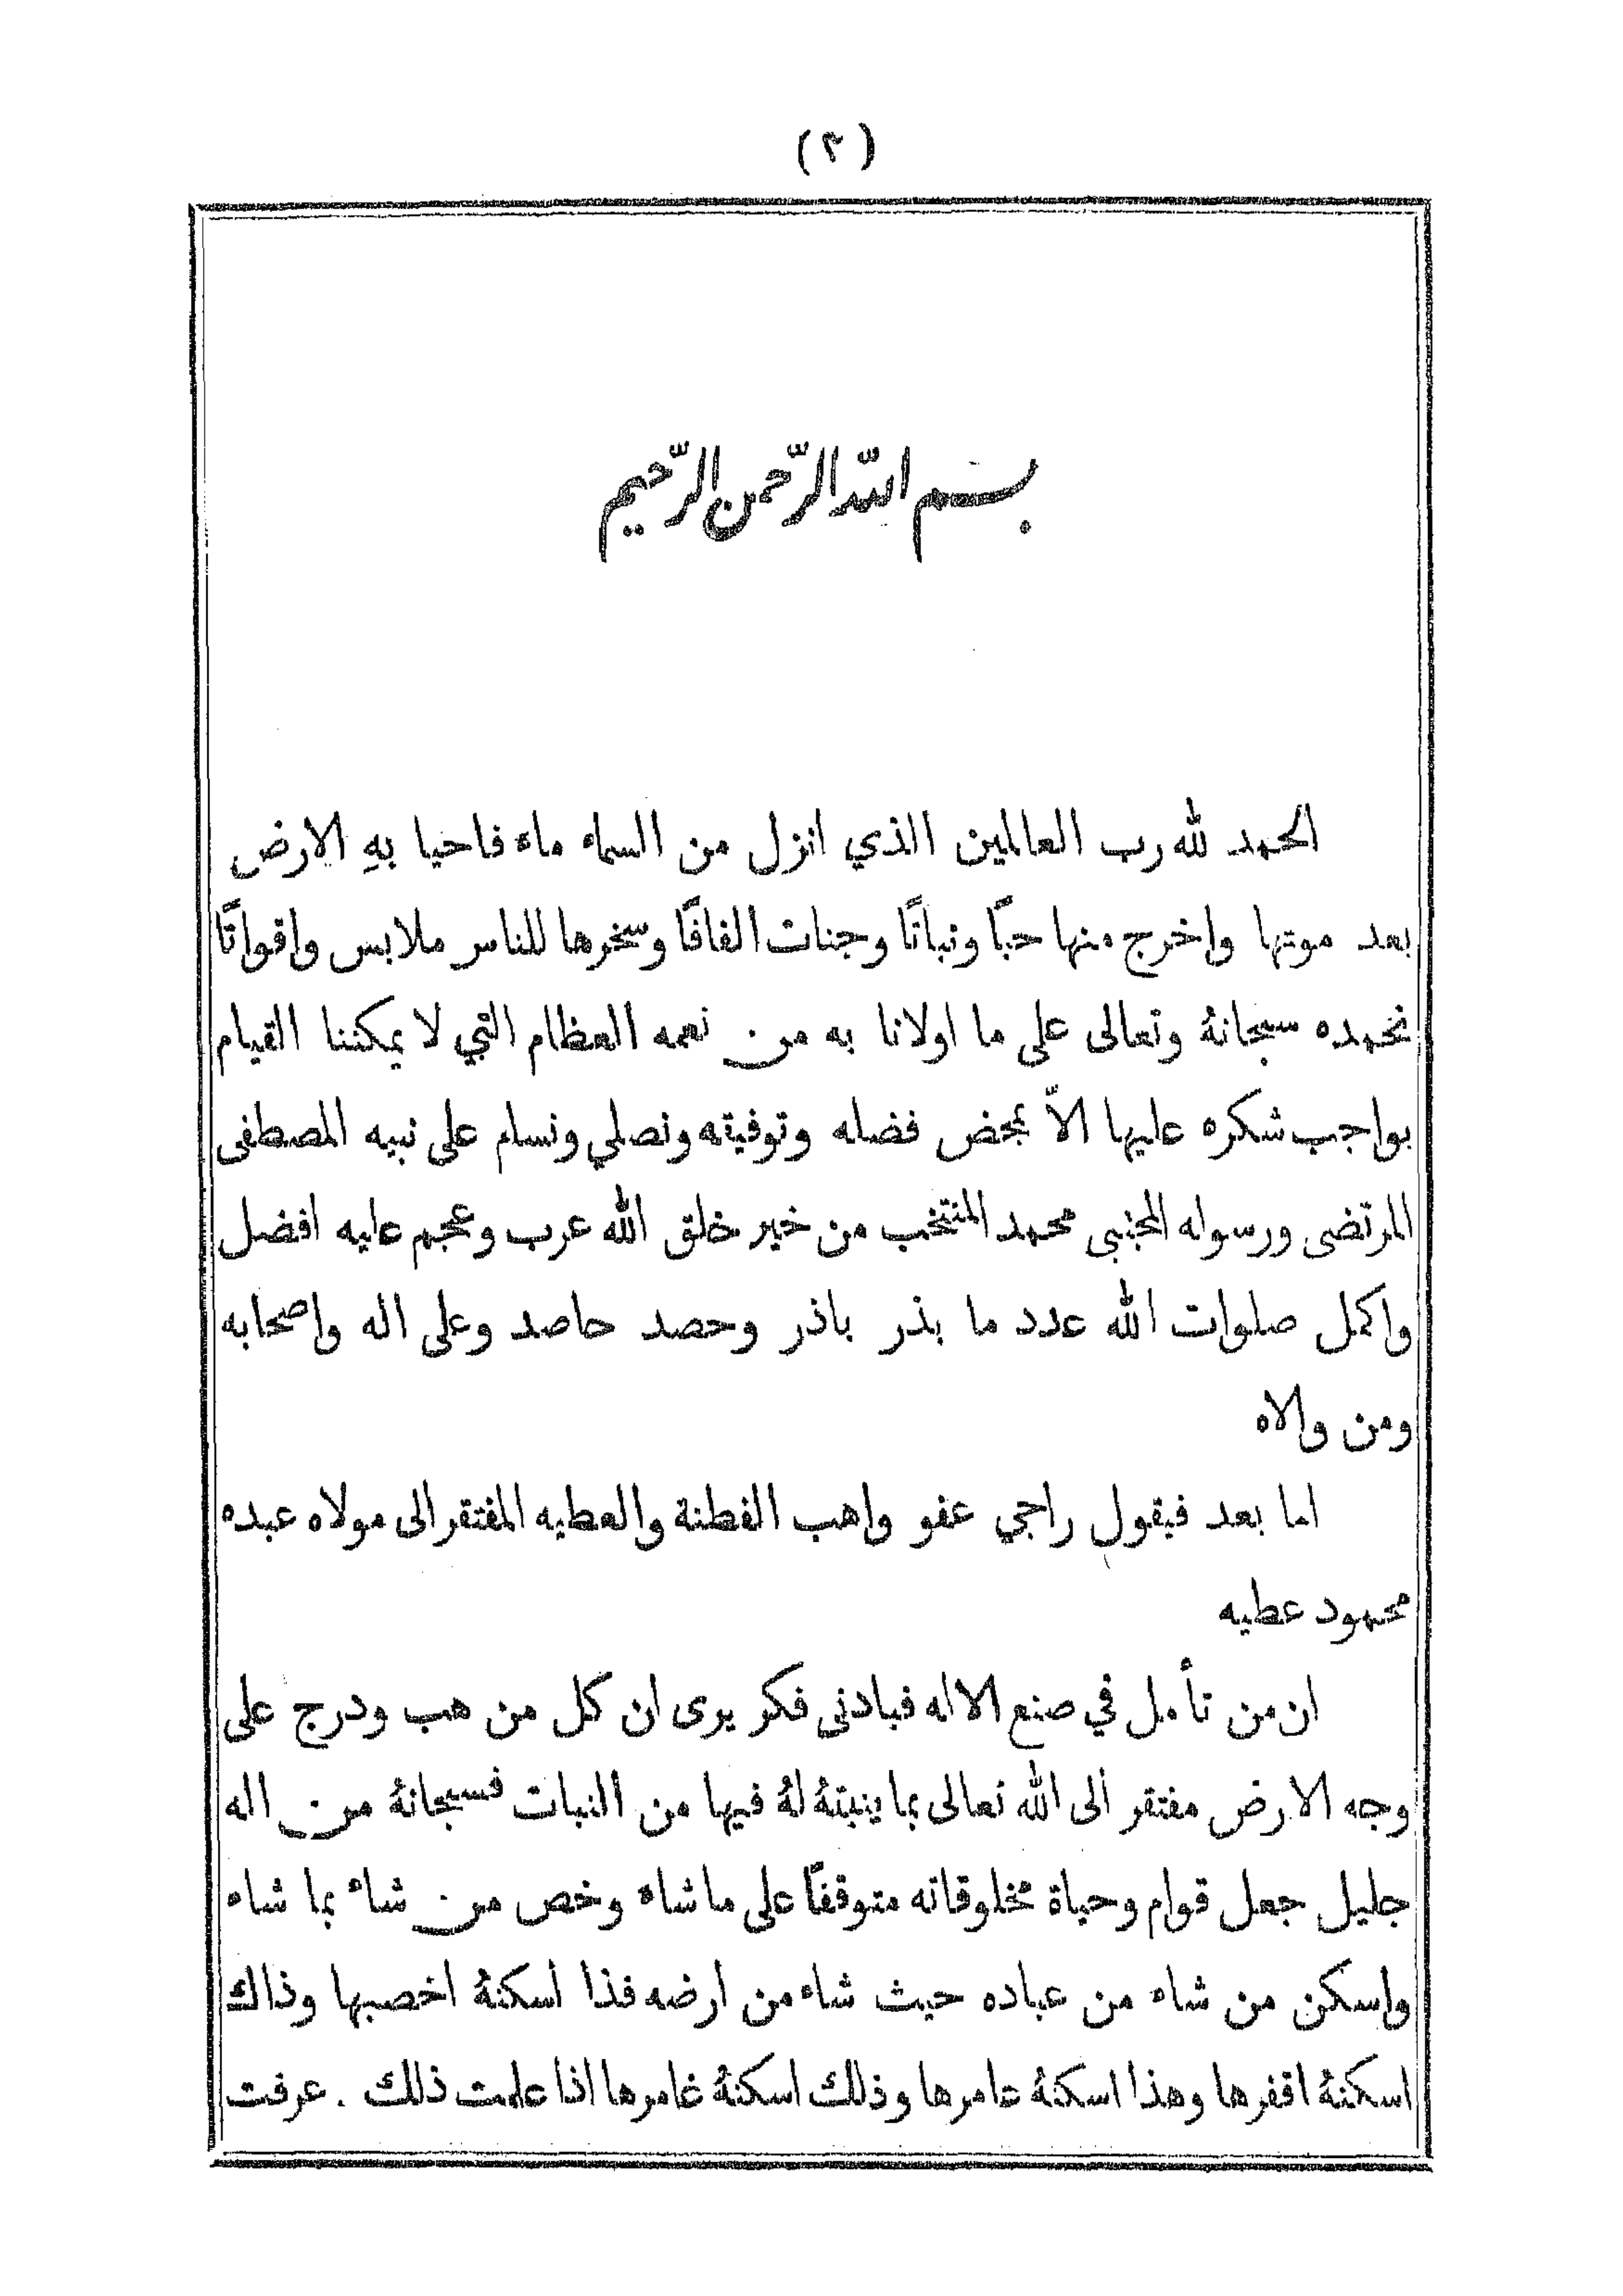 (٢)
بسم الله الرّحمن الرّحيم
الحمد لله رب العالمين الذي انزل من السماء ماء فاحيا بهِ الارض
بعد موتها واخرج منها حبًا ونباتًا وجنات الفافًا وسخرها للناس ملابس واقواتًا
نحمده سبحانهُ وتعالى على ما اولانا به من نعمه العظام التي لا يمكننا القيام
بواجب شكره عليها الاّ بمحض فضله وتوفيقه ونصلي ونسلم على نبيه المصطفى
المرتضى ورسوله المجتبى محمد المنتخب من خير خلق الله عرب وعجم عليه افضل
واكمل صلوات الله عدد ما بذر باذر وحصد حاصد وعلى اله واصحابه
ومن والاه
اما بعد فيقول راجي عفو واهب الفطنة والعطيه المفتقر الى مولاه عبده
محمود عطيه
ان من تأمل في صنع الاله فبادنى فكر يرى ان كل من هب ودرج على
وجه الارض مفتقر الى الله تعالى بما ينبتهُ لهُ فيها من النبات فسبحانهُ من اله
جليل جعل قوام وحياة مخلوقاته متوقفًا على ما شاء وخص من شاء بما شاء
واسكن من شاء من عباده حيث شاء من أرضه فذا أسكنهُ اخصبها وذاك
اسكنهُ اقفرها وهذا اسكنهُ عامرها وذلك اسكنهُ غامرها اذا علمت ذلك . عرفت